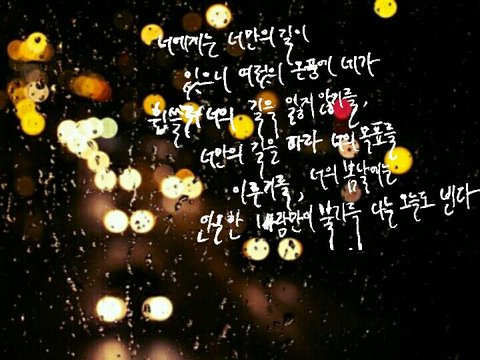 너에게는 너만의 길이
있으니 여럿의 돌풍에 네가
휩쓸려 너의 길을 잃지 않기를,
너만의 길을 따라 너의 목표를
이루기를, 너의 봄날에는
언온한 바람만이 불기를 나는 오늘도 빈다